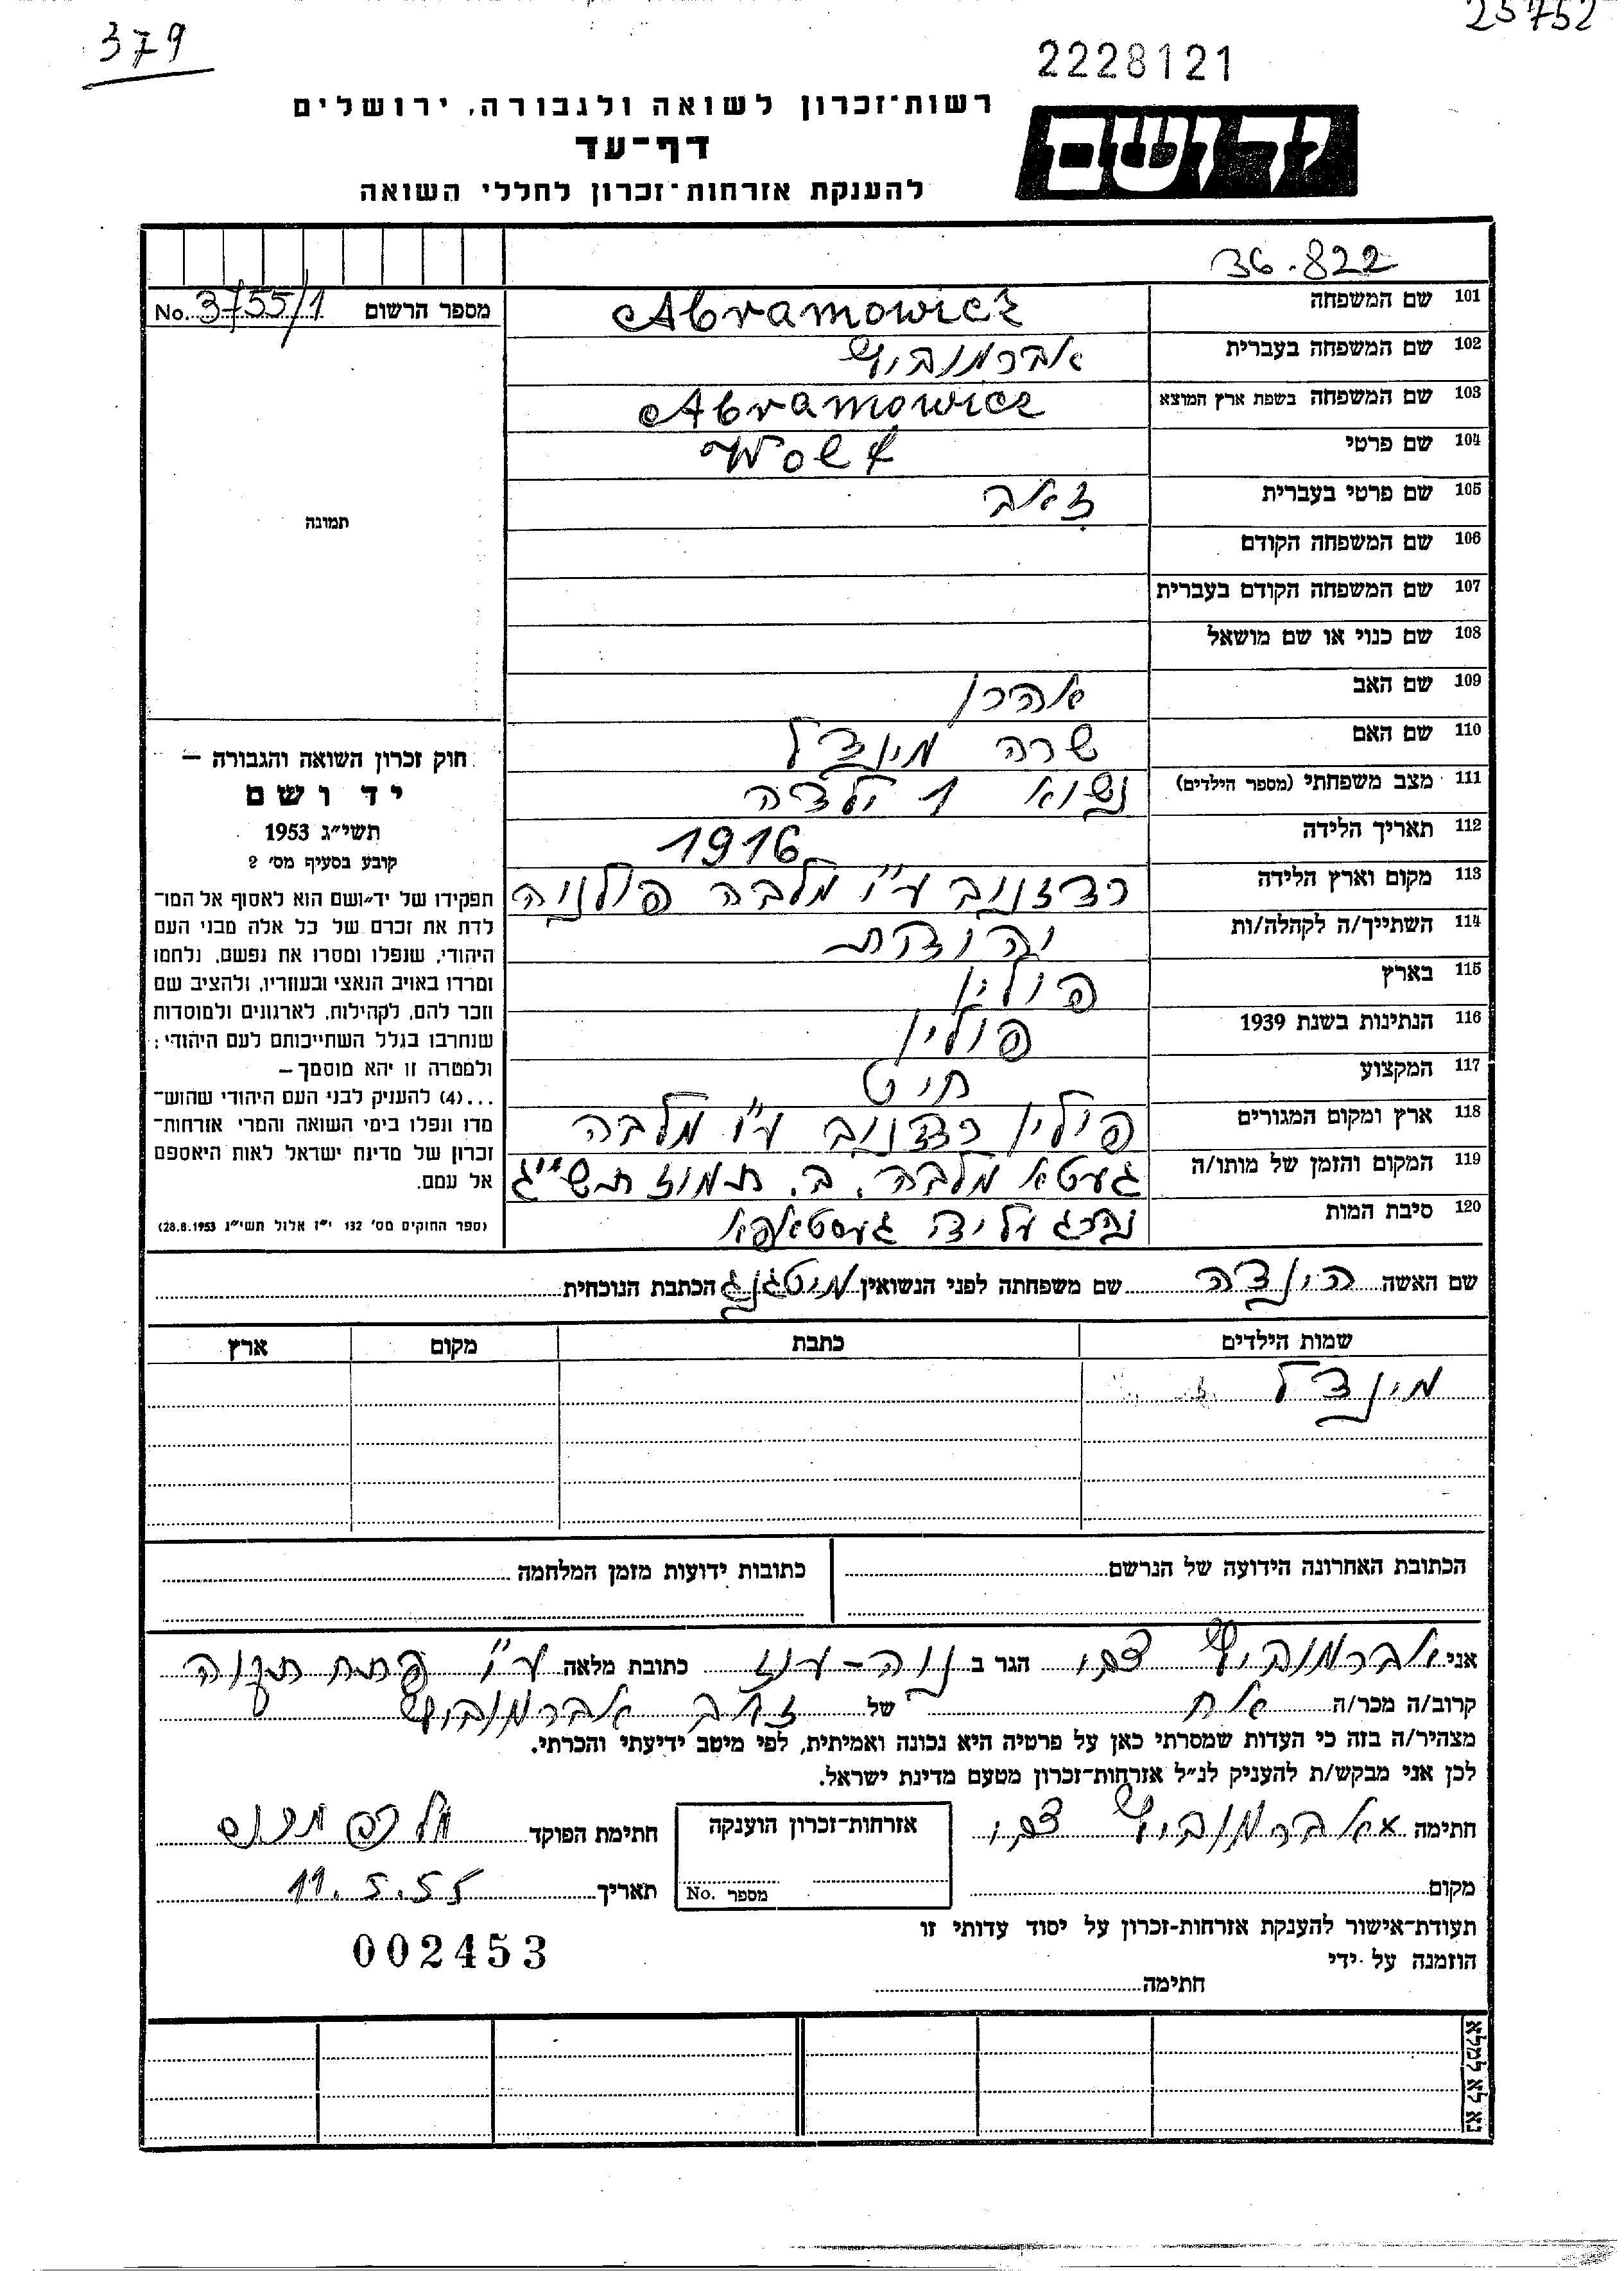 379
25752
2228121
רשות־זכרון לשואה ולגבורה, ירושלים
דף־עד
להענקת אזרחות־זכרון לחללי השואה
ידושם
36.822
מספר הרשום No. 3755/1
101 שם המשפחה Abramowicz
102 שם המשפחה בעברית אברמוביץ
103 שם המשפחה בשפת ארץ המוצא Abramowicz
104 שם פרטי
105 שם פרטי בעברית זאב
106 שם המשפחה הקודם
107 שם המשפחה הקודם בעברית
108 שם כנוי או שם מושאל
109 שם האב אהרן
110 שם האם שרה מינדל
111 מצב משפחתי (מספר הילדים) נשוא 1 ילדה
112 תאריך הלידה 1916
113 מקום וארץ הלידה ע"י מלבה פולניה
114 השתייך/ה לקהלה/ות יהודית
115 בארץ פולין
116 הנתינות בשנת 1939 פולין
117 המקצוע חיט
118 ארץ ומקום המגורים פולין ע"י מלבה
119 המקום והזמן של מותו/ה געטא מלבה. ב. תמוז
120 סיבת המות נהרג על ידי געסטאפא
תמונה
חוק זכרון השואה והגבורה —
יד ושם
תשי״ג 1953
קובע בסעיף מס׳ 2
תפקידו של יד־ושם הוא לאסוף אל המו־
לדת את זכרם של כל אלה מבני העם
היהודי, שנפלו ומסרו את נפשם, נלחמו
ומרדו באויב הנאצי ובעוזריו, ולהציב שם
וזכר להם, לקהילות, לארגונים ולמוסדות
שנחרבו בגלל השתייכותם לעם היהודי:
ולמטרה זו יהא מוסמך—
...(4) להעניק לבני העם היהודי שהוש־
מדו ונפלו בימי השואה והמרי אזרחות־
זכרון של מדינת ישראל לאות היאספם
אל עמם.
(ספר החוקים מס׳ 132 י״ז אלול תשי״ג 28.8.1953)
שם האשה הינדה שם משפחתה לפני הנשואין הכתבת הנוכחית
שמות הילדים כתבת מקום ארץ
מינדל
הכתובת האחרונה הידועה של הנרשם כתובות ידועות מזמן המלחמה
אני אברמוביץ צבי הגר ב נוה-עוז כתובת מלאה ע"י פתח תקוה
קרוב/ה מכר/ה אח של זאב אברמוביץ
מצהיר/ה בזה כי העדות שמסרתי כאן על פרטיה היא נכונה ואמיתית, לפי מיטב ידיעתי והכרתי.
לכן אני מבקש/ת להעניק לנ״ל אזרחות־זכרון מטעם מדינת ישראל.
חתימה אברמוביץ צבי אזרחות־זכרון הוענקה חתימת הפוקד
מקום מספר No. תאריך 11.5.55
תעודת־אישור להענקת אזרחות-זכרון על יסוד עדותי זו
הוזמנה על ידי
חתימה
002453
נא לא למלא